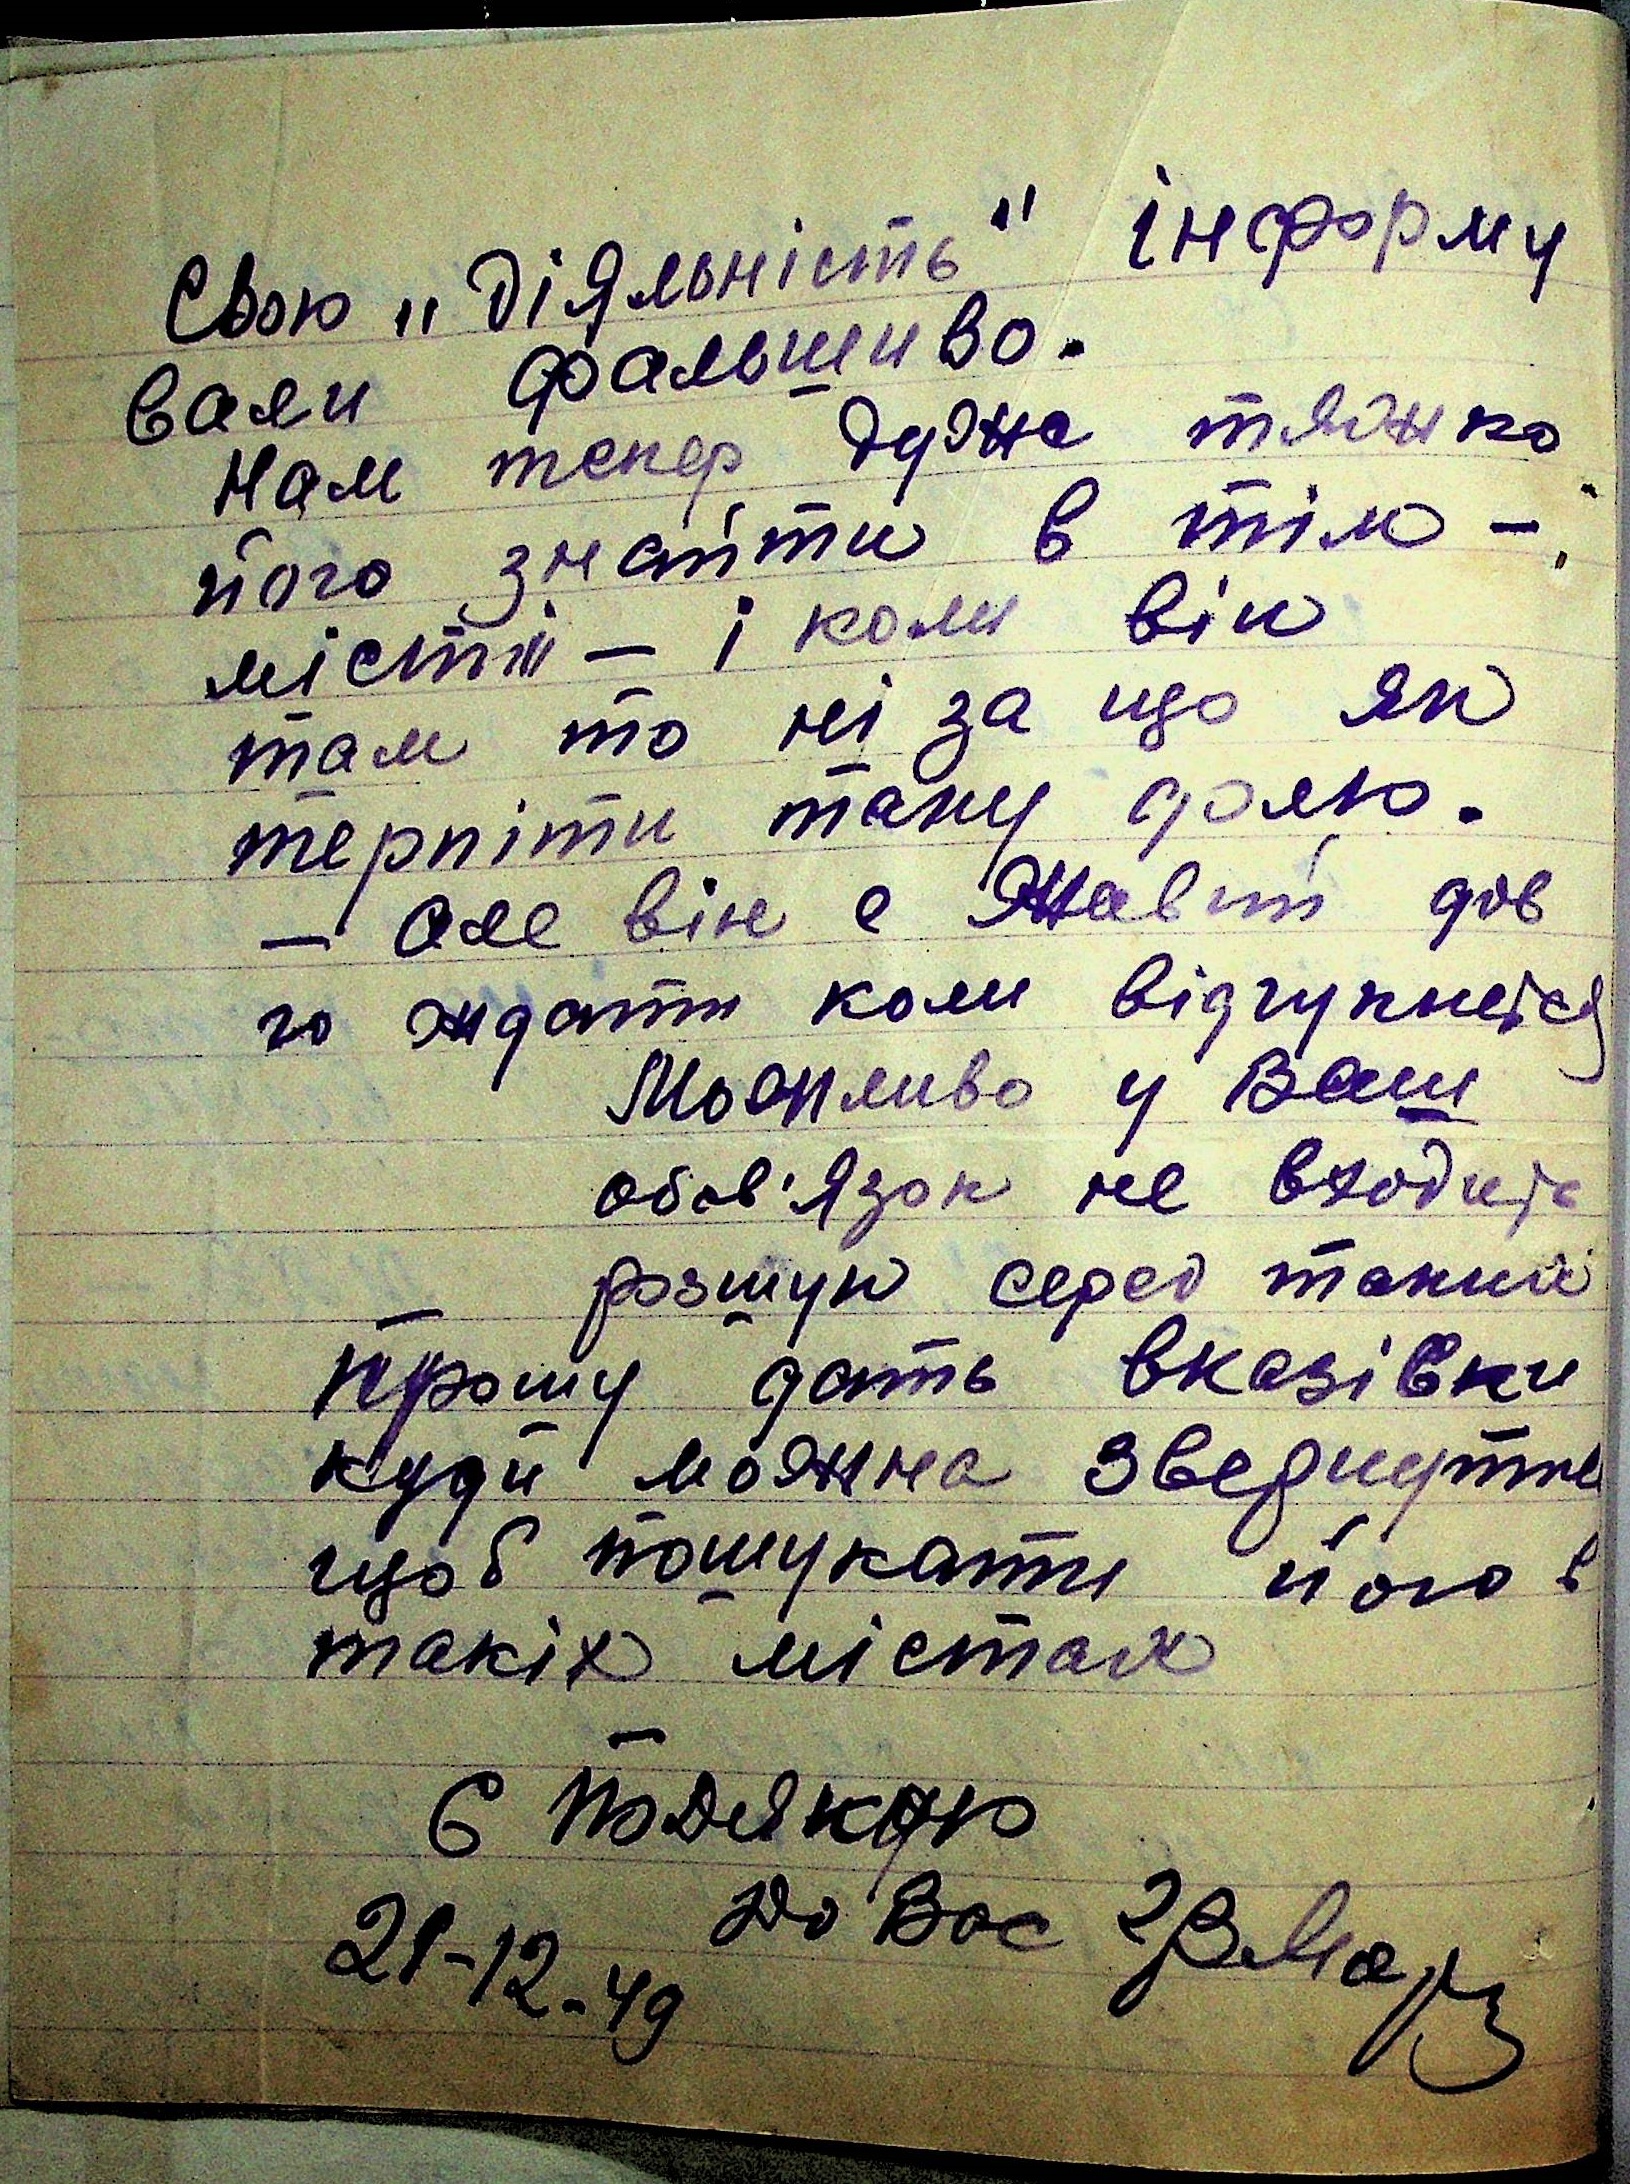 Свою „Діяльність" інформу
вали фальшиво.
Нам тепер дуже тяжко
його знайти в тім –
місті – і коли він
там то ні за що як
терпіти таку долю.
– Але він є Жавий дов
го ждати коли відгукнеться
Можливо у Ваш
обов'язок не входить
розшук серед таких
Прошу дать вказівки
куди можна звернутись
щоб пошукати його в
такіх містах
Є Подякою
До Вас
21-12-49